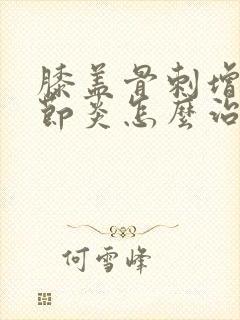 膝盖骨刺增
節炎怎麼治
何雪峰